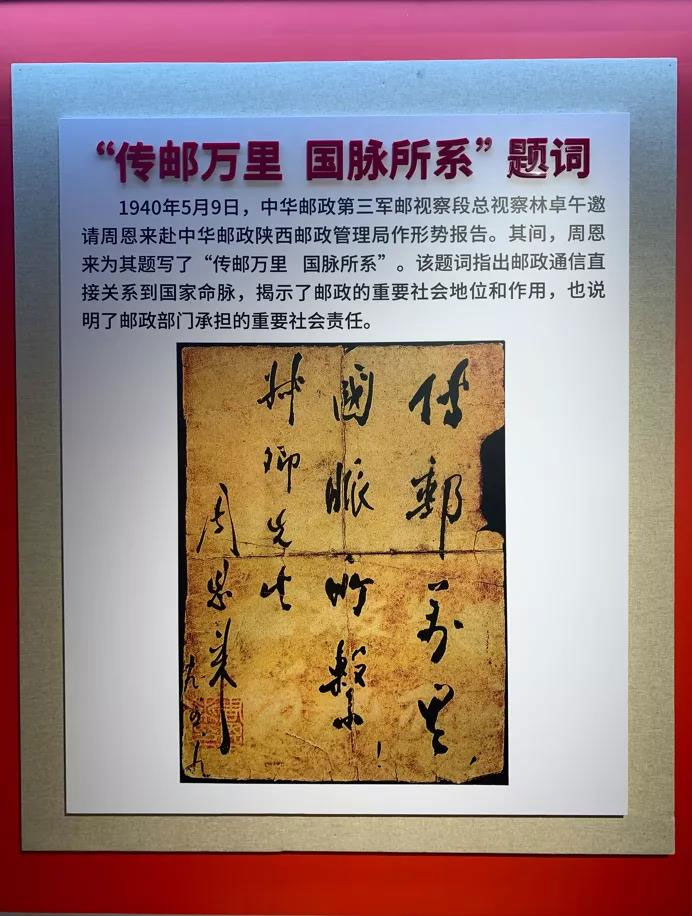 “传邮万里 国脉所系”题词
1940年5月9日，中华邮政第三军邮视察段总视察林卓午邀
请周恩来赴中华邮政陕西邮政管理局作形势报告。其间，周恩
来为其题写了“传邮万里 国脉所系”。该题词指出邮政通信直
接关系到国家命脉，揭示了邮政的重要社会地位和作用，也说
明了邮政部门承担的重要社会责任。
傳郵万里，
國脈所繫！
卿先生
周恩来